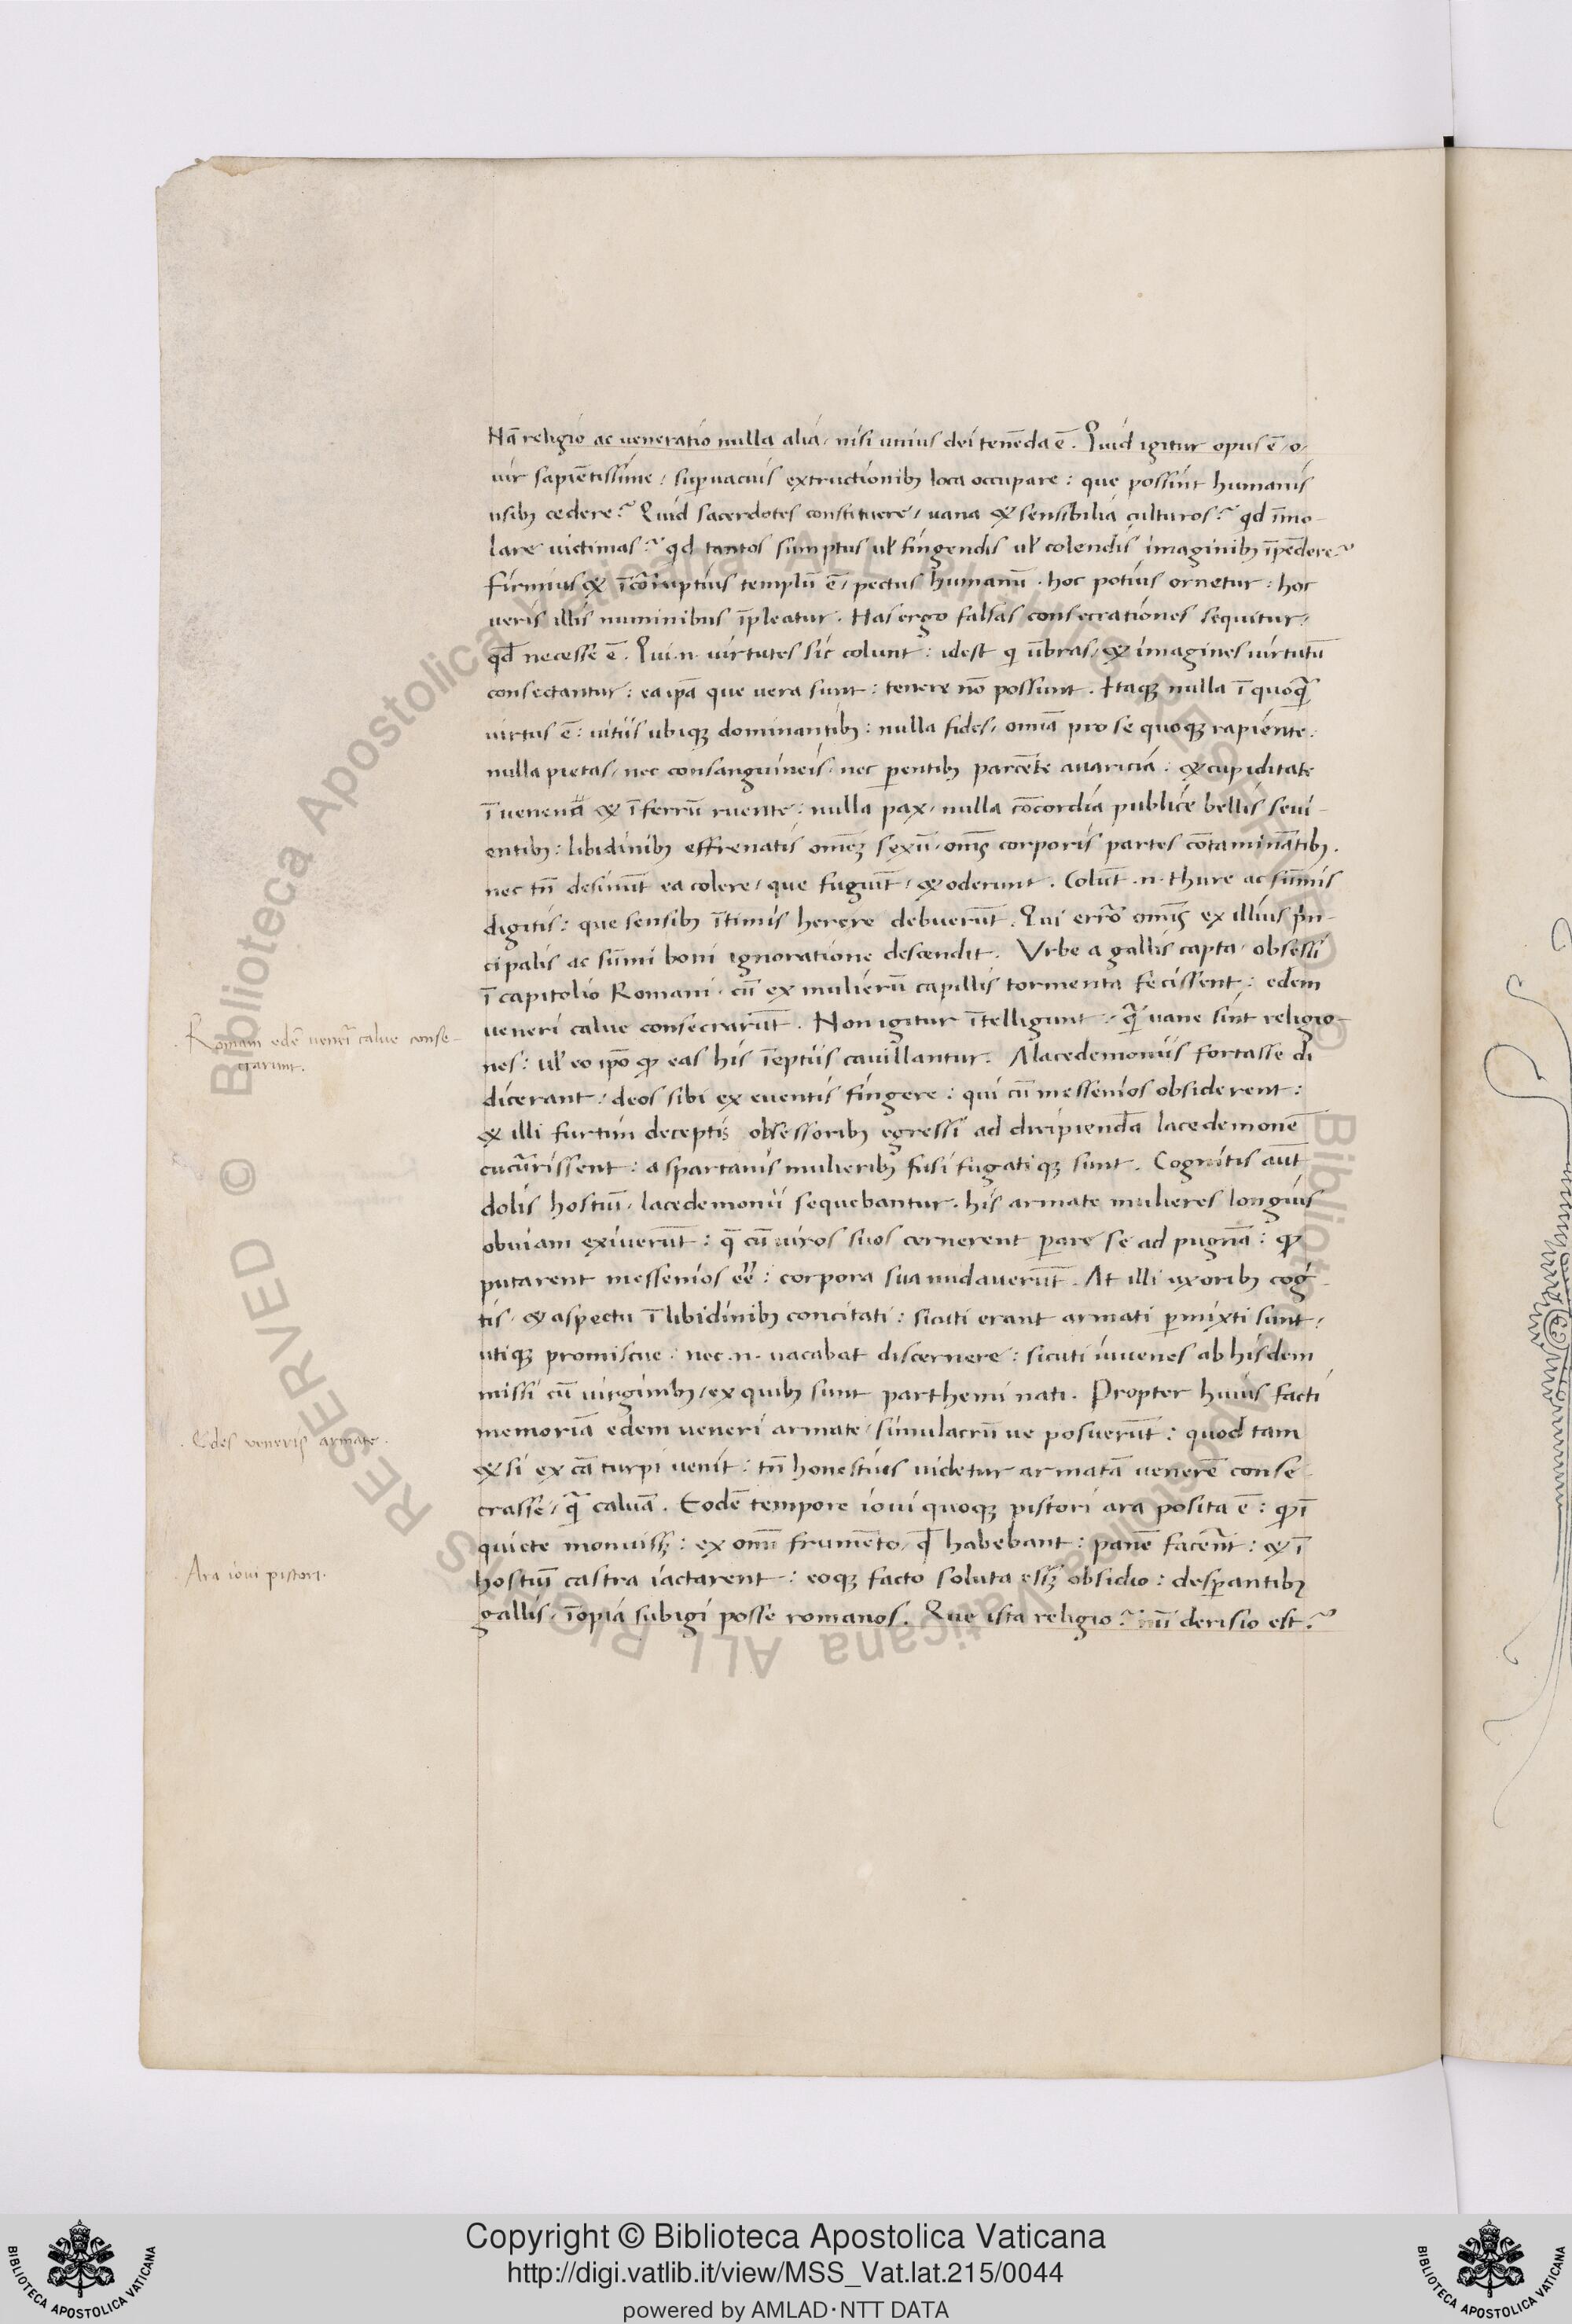 Nā religio ac veneratio nulla alia / nisi unius dei tenēda ē. Quid igitur opus ē / o /
uir sapiētissime / supuacuis extructionibꝫ loca occupare : que possint humanis
usibꝫ cedere? Quid sacerdotes constituere / uana & sensibilia culturos? qd īmo-
lare uictimas? qd tantos sumptus ul̄ fingendis ul̄ colendis imaginibꝫ īpēdere?
firmius & īcōrruptius templū ē / pectus humanū. hoc potius ornetur : hoc
ueris illis numinibus īpleatur. Has ergo falsas consecrationes sequitur /
qđ necesse ē. Qui .n. uirtutes sic colunt : idest q ūbras / & imagines uirtutū
consectantur : ea ipā que uera sunt : tenere nō possunt. Itaqꝫ nulla ī quoq̄
uirtus ē : uitiis ubiqꝫ dominantibꝫ : nulla fides / omīa pro se quoqꝫ rapiente :
nulla pietas / nec consanguineis / nec pentibꝫ parcēte auaricia : & cupiditate
ī uenena & ī ferrū ruente : nulla pax / nulla cōcordia publice bellis seui-
entibꝫ : libidinibꝫ effrenatis omēꝫ sexū / om̄s corporis partes cōtaminātibꝫ.
nec tn̄ desinūt ea colere / que fugiūt / & oderunt. Colūt .n. thure ac sūmis
digitis : que sensibꝫ ītimis herere debuerūt. Qui errō om̄s ex illius prin-
cipalis ac sūmi boni ignoratione descendit. Vrbe a gallis capta / obsessi
ī capitolio Romani / cū ex mulierū capillis tormenta fecissent : edem
ueneri calue consecrarūt. Non igitur ītelligunt / q̄ uane sint religio-
nes : ul̄ eo ipō ꝙ eas his īeptiis cauillantur. Alacedemoniis fortasse di
dicerant / deos sibi ex euentis fingere : qui cū messenios obsiderent :
& illi furtim deceptis obsessoribꝫ egressi ad diripiendā lacedemonē
cucurrissent : a spartanis mulieribꝫ fusi fugatiqꝫ sunt. Cognitis aūt
dolis hostiū / lacedemonii sequebantur. his armate mulieres longius
obuiam exiuerūt : q̄ cū uiros suos cernerent pare se ad pugnā : ꝙ
putarent messenios eē : corpora sua nudauerūt. At illi uxoribꝫ cog-
tis / & aspectu ī libidinibꝫ concitati : sicuti erant armati pmixti sunt /
utiqꝫ promiscue : nec .n. uacabat discernere : sicuti iuuenes ab hisdem
missi cū uirginibꝫ / ex quibꝫ sunt parthenii nati. Propter huius facti
memoriā edem ueneri armate / simulacrū ue posuerūt : quod tam
& si ex cā turpi uenit : tn̄ honestius uidetur armatā uenerē conse-
crasse / q̄ caluā. Eodē tempore ioui quoqꝫ pistori ara posita ē : ꝙ ī
quiete monuissꝫ : ex omī frumēto / qđ habebant : panē facerēt : & ī
hostiū castra iactarent : eoqꝫ facto soluta essꝫ obsidio : despantibꝫ
gallis / īopia subigi posse romanos. Que ista religio? derisio est?
Romani edē ueneri calue conse-
crarunt.
Edes veneris armate.
Ara ioui pistori.
Copyright © Biblioteca Apostolica Vaticana
http://digi.vatlib.it/view/MSS_Vat.lat.215/0044
powered by AMLAD·NTT DATA
BIBLIOTECA APOSTOLICA VATICANA
BIBLIOTECA APOSTOLICA VATICANA
© Biblioteca Apostolica Vaticana ALL RIGHTS RESERVED
© Biblioteca Apostolica Vaticana ALL RIGHTS RESERVED